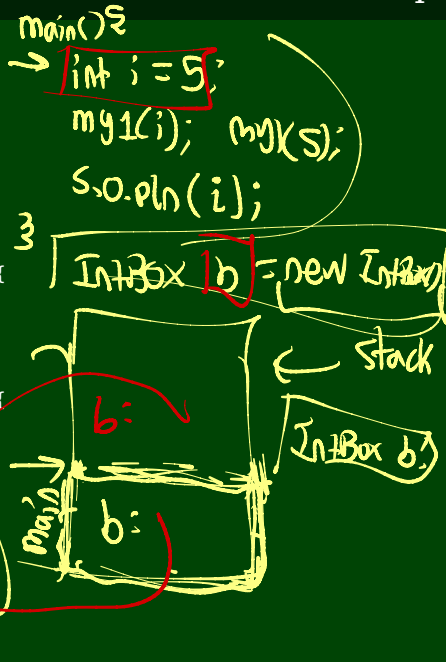 main(){
int i = 5;
my1(i); my1(5);
S.O.pln(i);
}
IntBox b = new IntBox()
Stack
b:
IntBox b;
main
b: